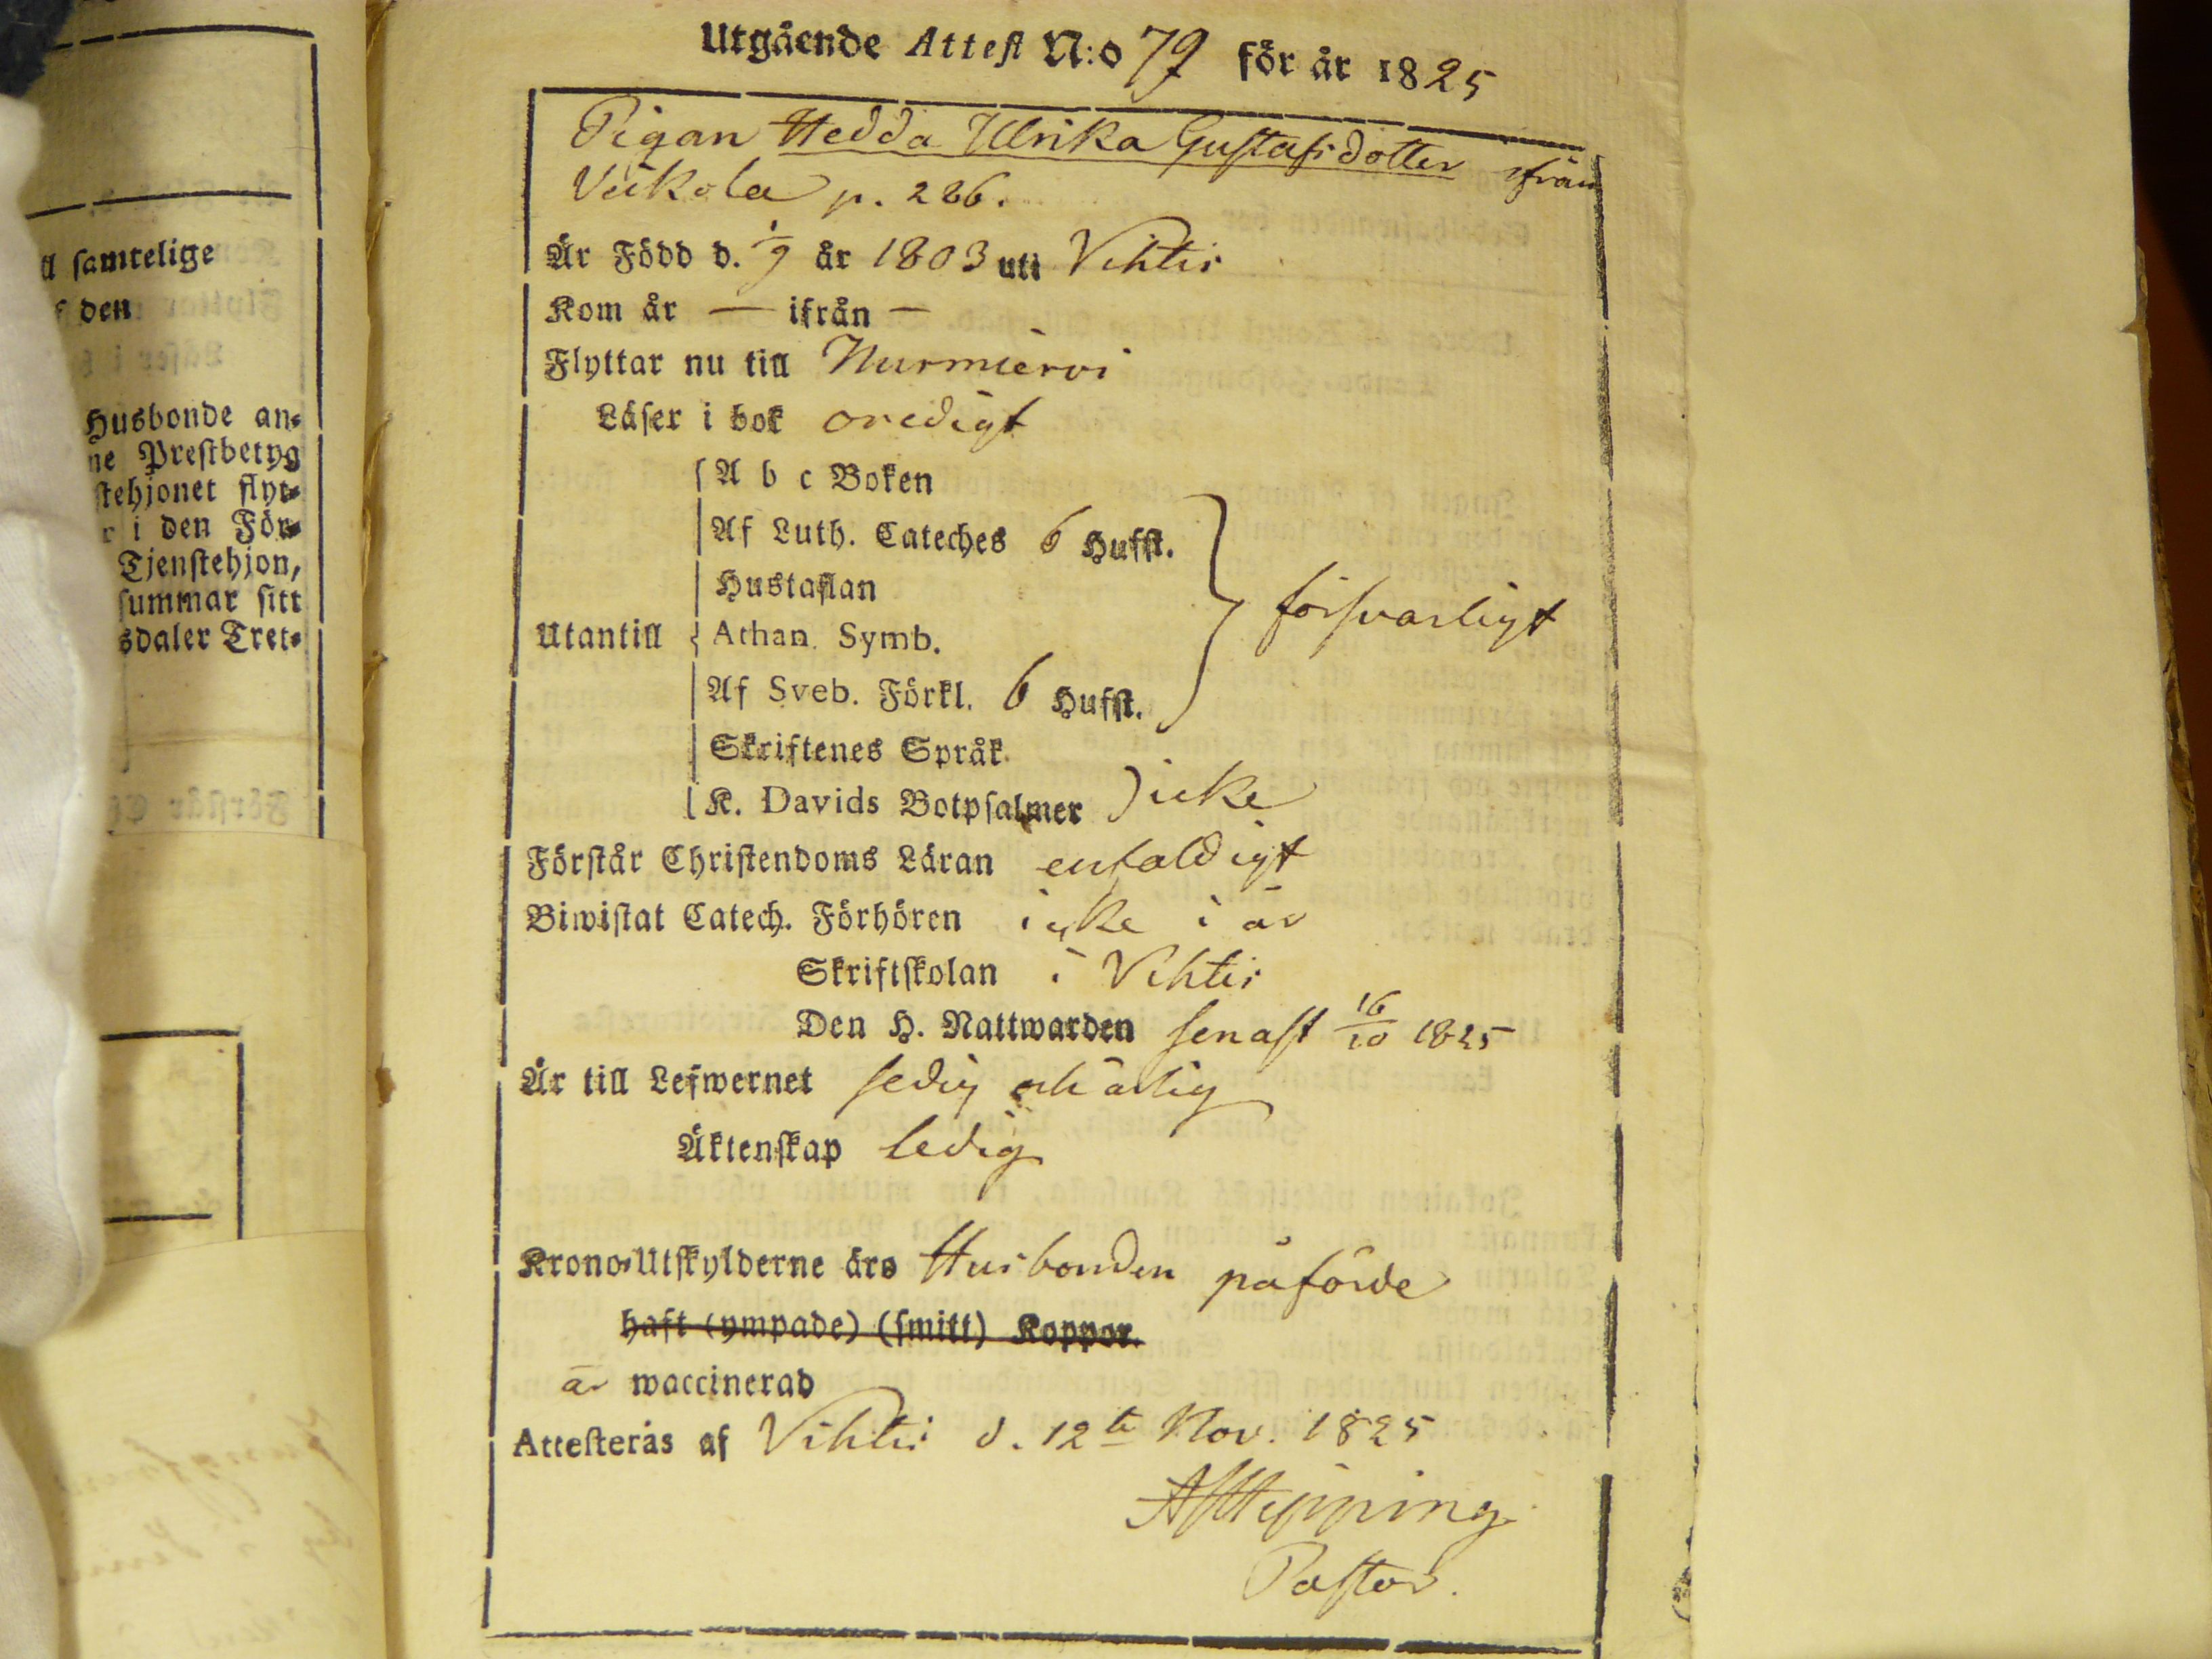 ll samtelige
f den
Husbonde an-
ne Prestbetyg
stehjonet flyt-
r i den För-
Tjenstehjon,
summar sitt
sdaler Tret-
Utgående Attest N:o 79 för år 1825
Pigan Hedda Ulrika Gustafsdotter ifrån
Veikola p. 286.
Är Född d. 1/9 år 1803 uti Vihtis
Kom år — ifrån —
Flyttar nu till Nurmiervi
Läser i bok oredigt
A b c Boken
Af Luth. Cateches 6 Hufst.
Hustaflan
försvarligt
Utantill Athan. Symb.
Af Sveb. Förkl. 6 Hufst.
Skriftenes Språk
K. Davids Botpsalmer icke
Förstår Christendoms Läran enfaldigt
Biwistat Catech. Förhören icke i år
Skriftskolan i Vihtis
Den H. Nattwarden senast 16/10 1825
Är till Lefwernet sedig och ärlig
Äktenskap ledig
Krono-Utskylderne äro Husbonden påförde
haft (ympade) (smitt) Koppor.
är waccinerad
Attesteras af Vihtis d. 12te Nov. 1825
Hipping
Pastor.